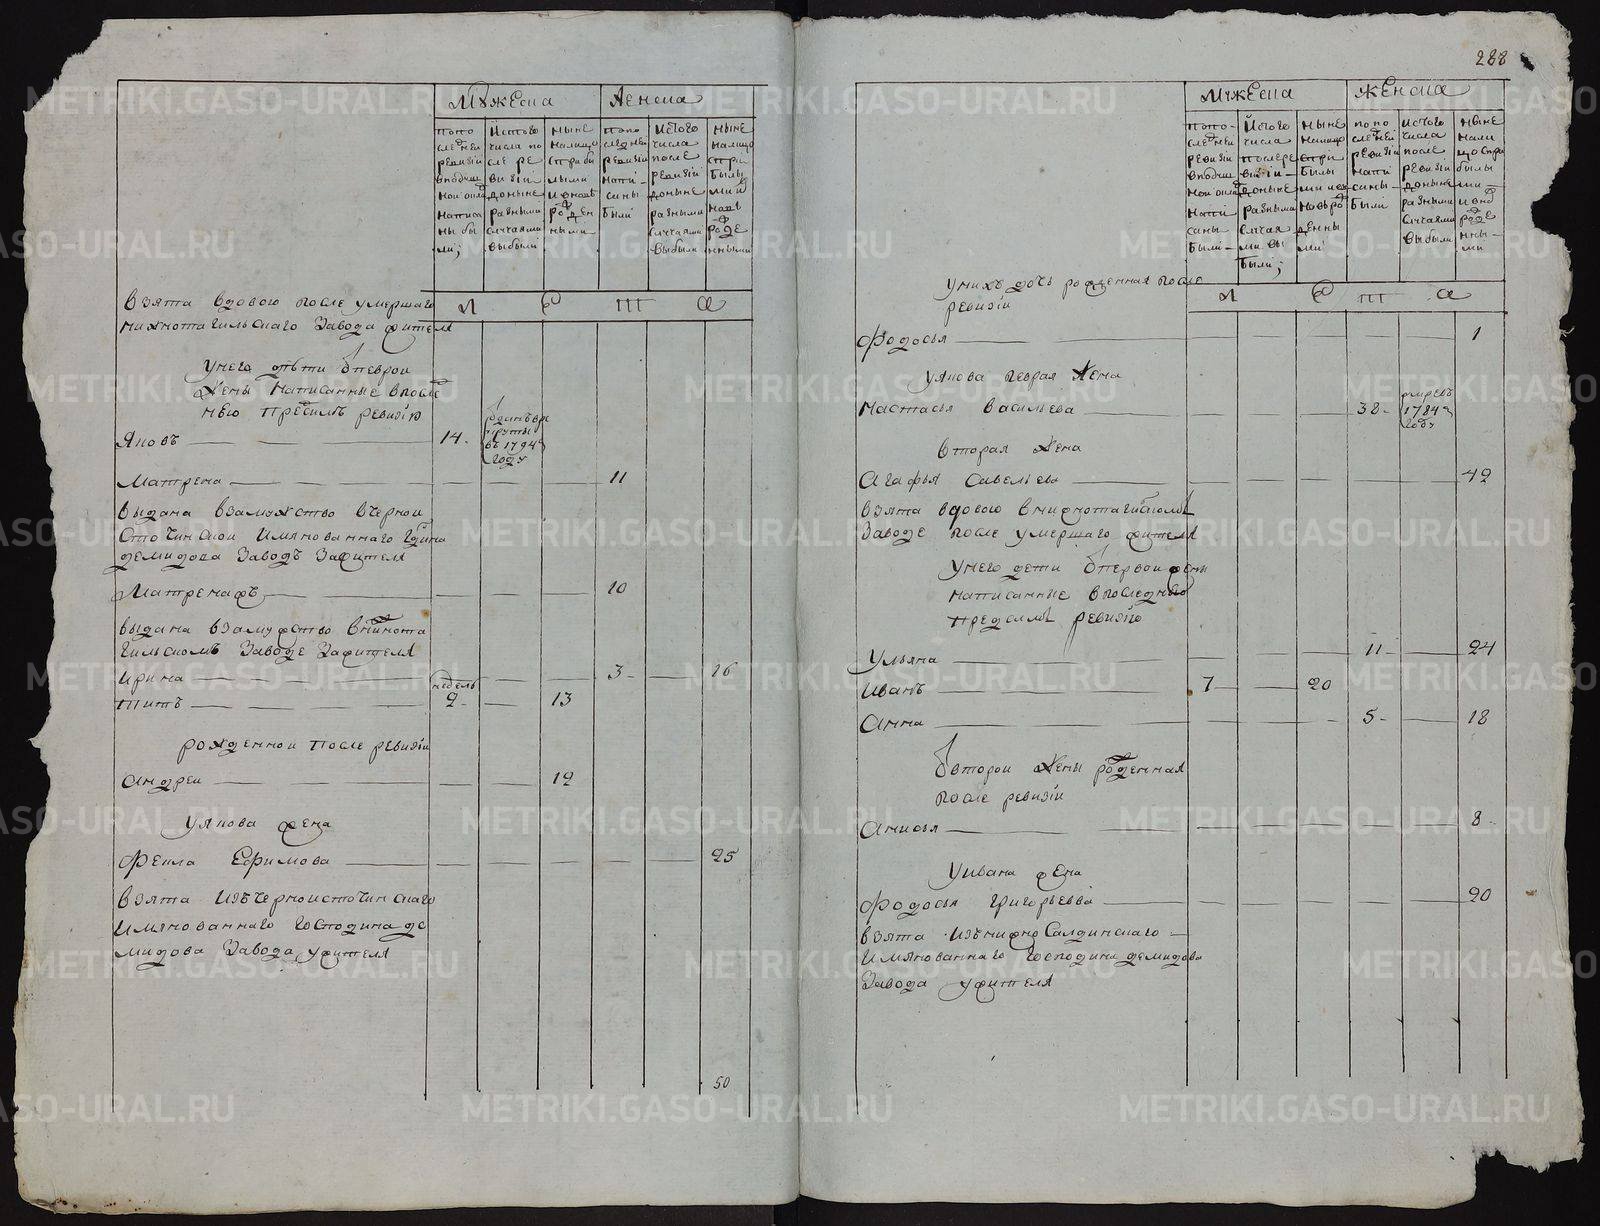 288
Мужеска Женска
попо
следней
ревизіи
вподуш
ной окла
написа
ны бы
ли;
Истого
числа по
сле ре
визіи
доныне
разными
случаями
выбыли
ныне
налицо
сприбы
лыми
и вновь
рожден
ными
попо
следней
ревизіи
напи-
саны
были
Истого
числа
после
ревизіи
доныне
разными
случаями
выбыли
ныне
налицо
спри
былы
ми и
новь
рожде
нными
Л Е Т А
взята вдовою после умершаго
нижнотагильскаго Завода жителя
Унего дѣти отпервои
Жены написанные впосле
нею предсимъ ревизію
Яковъ 14.
отданъ в ре
круты
въ 1794
году
Матрена 11
выдана взамужство вчерной
сточинской Имянованнаго Гдина
демидова Заводъ Зажителя
Матренажъ 10
выдана взамужство внижнота
гильскомъ Заводе Зажителя
Ирина 3 16
Титъ недель 2 13
рожденной После ревизіи
Андреи 12
Уякова жена
Фекла Ефимова 25
взята Изъчерноисточинскаго
Имянованнаго Господина де
мидова Завода, ужителя
50
Мужеска Женска
попо-
следней
ревизіи
вподуш
ной окла
напи
саны
были-
Истого
числа
послере
визіи-
доныне
разными
случая
ми вы
были;
ныне
налицо
спри
былы
ми ис
новьро
денны
ми
попо
следней
ревизіи
напи
саны-
были
Истого
числа
после
ревизіи
доныне
разными
случаями
выбыли
ныне
нали
цо спри
былы
ми
и внов
рожде
нны-
ми
Л Е Т А
Унихъ дочь рожденная после
ревизіи
Федосья 1
Уякова первая Жена
Настасья Васильева 38
умре въ
1784
году
вторая Жена
Агафья Савельева 42
взята вдовою внижнотагильскомъ
Заводе после умершаго жителя
Унего дети отпервои жены
написанные впоследнею
пределмъ ревизію
Ульяна 11 24
Иванъ 7 20
Анна 5 18
Отвторои Жены рожденная
после ревизіи
Анисья 8
Уивана жена
Федосья Григорьевва 20
взята Изънижно Салдинскаго
Имянованнаго Господина демидова
Завода ужителя
METRIKI.GASO-URAL.RU